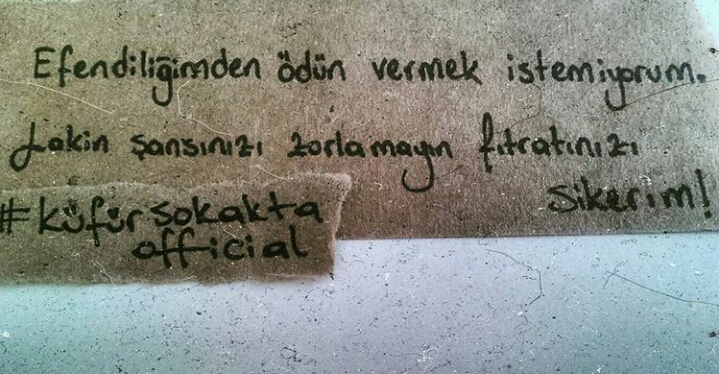 Efendiliğimden ödün vermek istemiyorum.
Lakin şansınızı zorlamayın fıtratınızı
sikerim!
#küfürsokakta
official